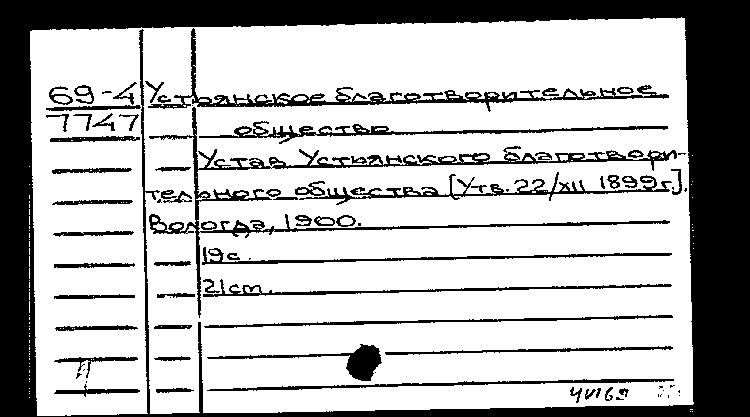 69-4 Устьянское благотворительное
7747 общество
Устав Устьянского благотвори-
тельного общества [Утв. 22/XII 1899 г.].
Вологда, 1900.
19 с.
21 cm.